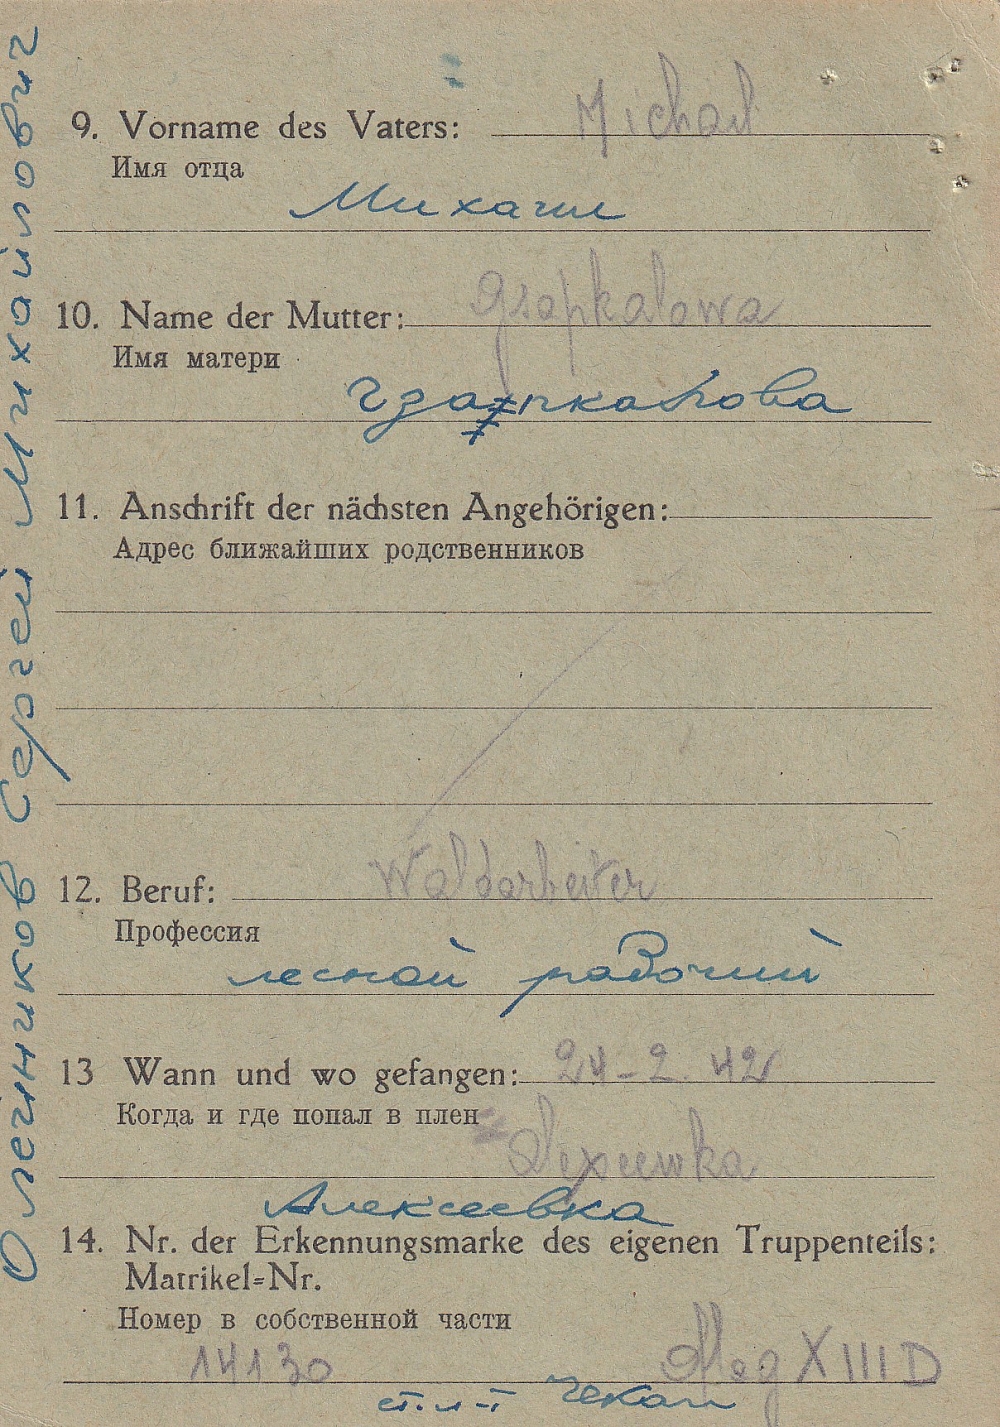 9. Vorname des Vaters: Michail
Имя отца
Михаил
10. Name der Mutter: Gsapkalowa
Имя матери
Гзапкалова
11. Anschrift der nächsten Angehörigen:
Адрес ближайших родственников
12. Beruf: Waldarbeiter
Профессия
лесной рабочий
13 Wann und wo gefangen: 24-2.42
Когда и где попал в плен
Алексеевка
14. Nr. der Erkennungsmarke des eigenen Truppenteils:
Matrikel=Nr.
Номер в собственной части
14130 XIII D
ст. л-т
Олейников Сергей Михайлович